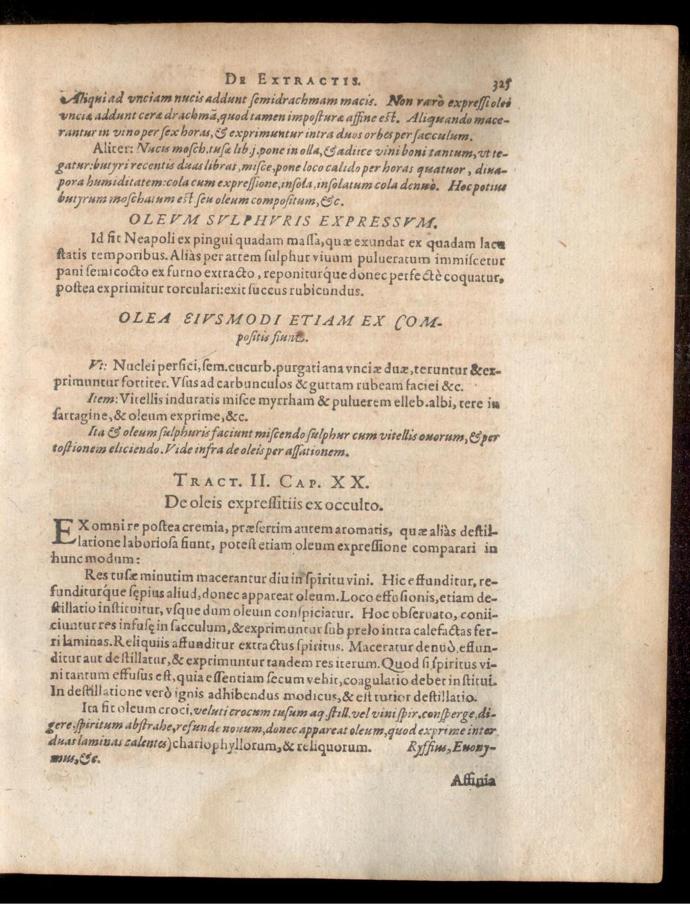 DE EXTRACTIS. 325
Aliqui ad vnciam nucis addunt semidrachmam macis. Non rarò expressi olei
vnciæ addunt ceræ drachmā, quod tamen imposturæ affine est. Aliquando mace-
rantur in vino per sex horas, & exprimuntur intra duos orbes per sacculum.
Aliter: Nucis mosch. tusæ lib. j. pone in olla, & adiice vini boni tantum, vt te-
gatur: butyri recentis duas libras, misce, pone loco calido per horas quatuor, diua-
pora humiditatem: cola cum expressione, insola, insolatum cola denuò. Hoc potius
butyrum moschatum est seu oleum compositum, &c.
OLEVM SVLPHVRIS EXPRESSVM.
Id fit Neapoli ex pingui quadam massa, quæ exundat ex quadam lacu
statis temporibus. Aliàs per artem sulphur viuum pulueratum immiscetur
pani semicocto ex furno extracto, reponiturque donec perfectè coquatur,
postea exprimitur torculari: exit succus rubicundus.
OLEA EIVSMODI ETIAM EX COM-
positis fiunt.
Vt: Nuclei persici, sem. cucurb. purgati ana vnciæ duæ, teruntur & ex-
primuntur fortiter. Vsus ad carbunculos & guttam rubeam faciei &c.
Item: Vitellis induratis misce myrrham & puluerem elleb. albi, tere in
sartagine, & oleum exprime, &c.
Ita & oleum sulphuris faciunt miscendo sulphur cum vitellis ouorum, & per
tostionem eliciendo. Vide infra de oleis per assationem.
TRACT. II. CAP. XX.
De oleis expressitiis ex occulto.
EX omni re postea cremia, præsertim autem aromatis, quæ aliàs destil-
latione laboriosa fiunt, potest etiam oleum expressione comparari in
hunc modum:
Res tusæ minutim macerantur diu in spiritu vini. Hic effunditur, re-
funditurque sępius aliud, donec appareat oleum. Loco effusionis, etiam de-
stillatio instituitur, vsque dum oleum conspiciatur. Hoc obseruato, conii-
ciuntur res infusę in sacculum, & exprimuntur sub prelo intra calefactas fer-
ri laminas. Reliquiis affunditur extractus spiritus. Maceratur denuò, effun-
ditur aut destillatur, & exprimuntur tandem res iterum. Quod si spiritus vi-
ni tantum effusus est, quia essentiam secum vehit, coagulatio debet institui.
In destillatione verò ignis adhibendus modicus, & est tutior destillatio.
Ita fit oleum croci, veluti crocum tusum aq. still. vel vini spir. consperge, di-
gere, spiritum abstrahe, refunde nouum, donec appareat oleum, quod exprime inter
duas laminas calentes) chariophyllorum, & reliquorum. Ryffius, Euony-
mus, &c.
Affinia